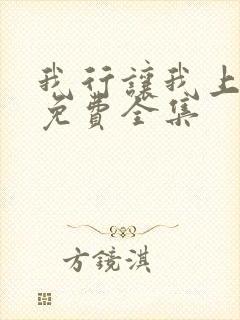 我行讓我上
免費全集
方鏡淇